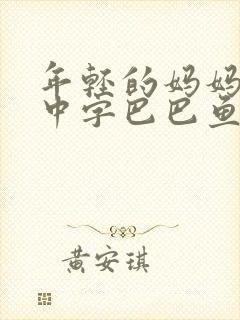 年轻的妈妈
中字巴巴鱼
黄安琪